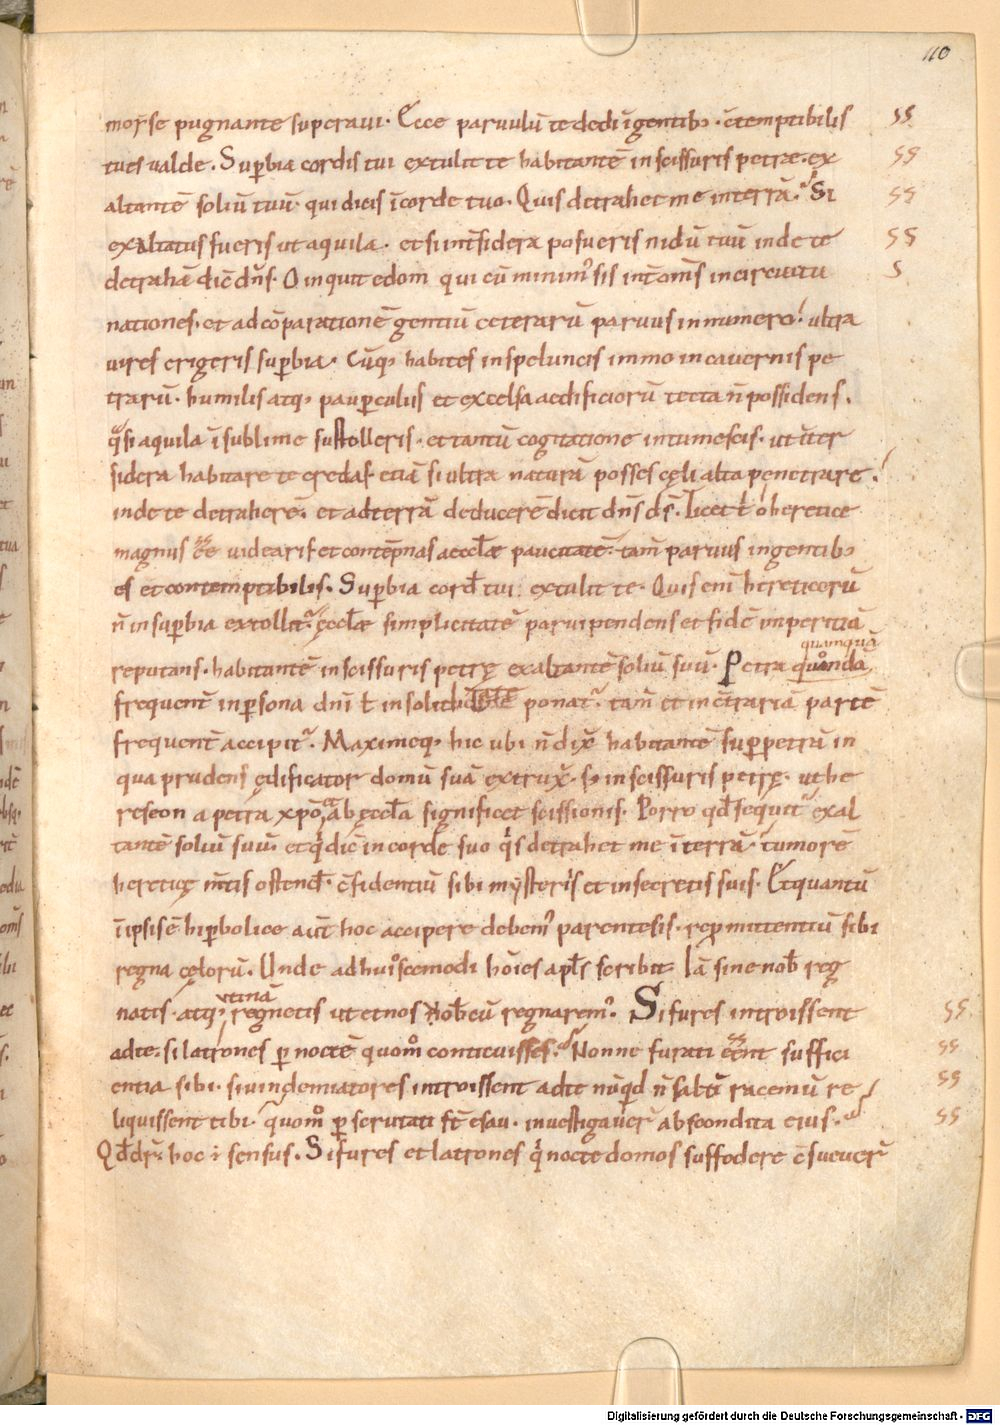 110
moyse pugnante superaui. Ecce paruulū te dedi īgentib; c̄temptibilis
tues valde. Suꝑbia cordis tui extulit te habitantē inscissuris petre. ex
altantē soliū tuū. qui dicis īcorde tuo. Quis detrahet me interrā. Si
exaltatus fueris ut aquila. et si int̄ sidera posueris nidū tuū inde te
detrahā dic̄ dn̄s. O inquit edom qui cū minim᾽ sis int̄ om̄s incircuitu
nationes. et ad cōparationē gentiū ceterarū paruus innumero. ultra
uires erigeris suꝑbia. Cūq; habites inspeluncis immo incauernis pe
trarū. humilis atq; pauꝑculus et excelsa aedificiorū tecta n̄ possidens.
qͣsi aquila īsublime sustolleris. et tantū cogitatione intumescis. ut int̄
sidera habitare te credas. etiā si ultra naturā posses cęli alta penetrare.
inde te detraherē. et adterrā deducerē dicit dn̄s ds̄. Licet ł o heretice
magnus ēē uidearis et contēpnas aeccłae paucitatē. tam̄ paruus ingentib;
es et contemptibilis. Suꝑbia cord̄ tui extulit te. Quis eni̅ hereticorū
n̄ insuꝑbia extollit᾽. ęccłae simplicitatē paruipendens et fidē imperitiā
reputans. habitantē inscissuris petrę exaltantē soliū suū. Petra quandā
quamquā
frequent̄ inꝑsona dni̅ ł insoliditate ponat᾽. tam̄ et inc̄trariā partē
frequent̄ accipit᾽. Maximeq; hic ubi n̄ dix̄ habitantē suꝑ petrā in
qua prudens ędificator domū suā extrux̄. s; inscissuris petrę. ut he
reseon a petra xp̄o, ab ęccła significet scissionis. Porro qd̄ sequit᾽ exal
tantē soliū suū. et qͥ dic̄ incorde suo qͥs detrahet me īterrā. tumorē
heretice m̄tis ostend̄. c̄fidentiū sibi mysteriis et insecretis suis. Et quantū
ī ipsis ē hiꝑbolice aut̄ hoc accipere debem᾽ parentesis. rep̄mittentiū sibi
regna cęlorū. Unde ad huiꝰscemodi hōies apłs scribit. Iā sine nob̄ reg
natis. atq; utinā regnetis ut et nos uob̄cū regnarem᾽. Si fures introissent
adte. si latrones ꝑ noctē quom̊ conticuisses. Nonne furati eēnt suffici
entia sibi. si uindemiatores introissent adte nūqͥd n̄ salti̅ racemū re
liquissent tibi. quom̊ ꝑscrutati s̄t esau. inuestigauer̄ abscondita eius.
Qd̄ dr̄. hoc ÷ sensus. Si fures et latrones qͥ nocte domos suffodere c̄sueuer̄
ss
ss
ss
ss
s
ss
ss
ss
ss
Digitalisierung gefördert durch die Deutsche Forschungsgemeinschaft - DFG